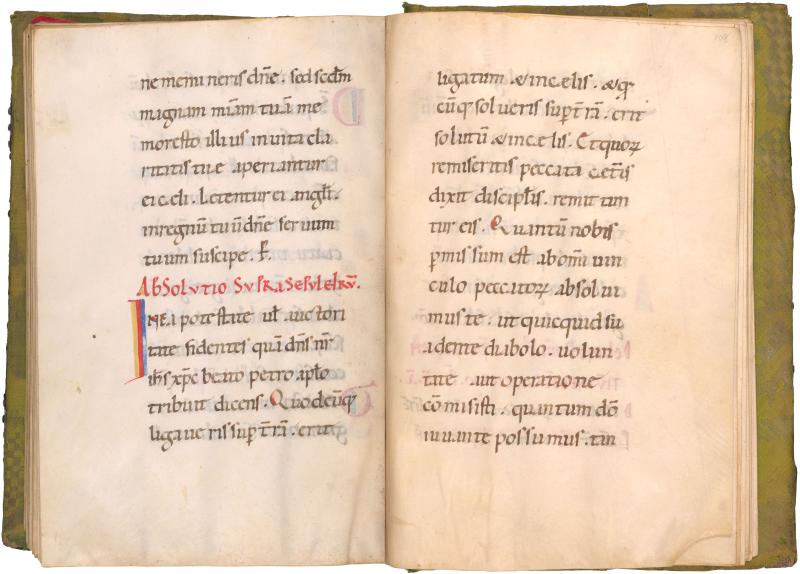 ne memineris dn̄e. sed scd̄m
magnam miām tuā me
moresto illius in vita cla
ritatis tue aperiantur
ei celi. Letentur ei angl̄i.
in regnū tuū dn̄e servum
tuum suscipe. P̄.
Absolutio supra sepulcrū.
INea potestate ul̄ auctori
tate fidentes quā dn̄s nr̄
ih̄s xp̄c beato petro ap̄lo
tribuit dicens. Quodcūq;
ligaveris sup̄ t̄rā. erit
ligatum & in celis. & q
cūq; solveris sup̄ t̄rā. erit
solutū & in celis. Et quoꝝ
remiseritis peccata cet̄is
dixit discipl̄is. remittun
tur eis. Quantū nobis
ꝑmissum est ab om̄i uin
culo peccatoꝝ absolui
mus te. ut quicquid su
adente diabolo. uolun
tate aut operatione
cōmisisti. quantum dō
iuuante possumus. tan
108